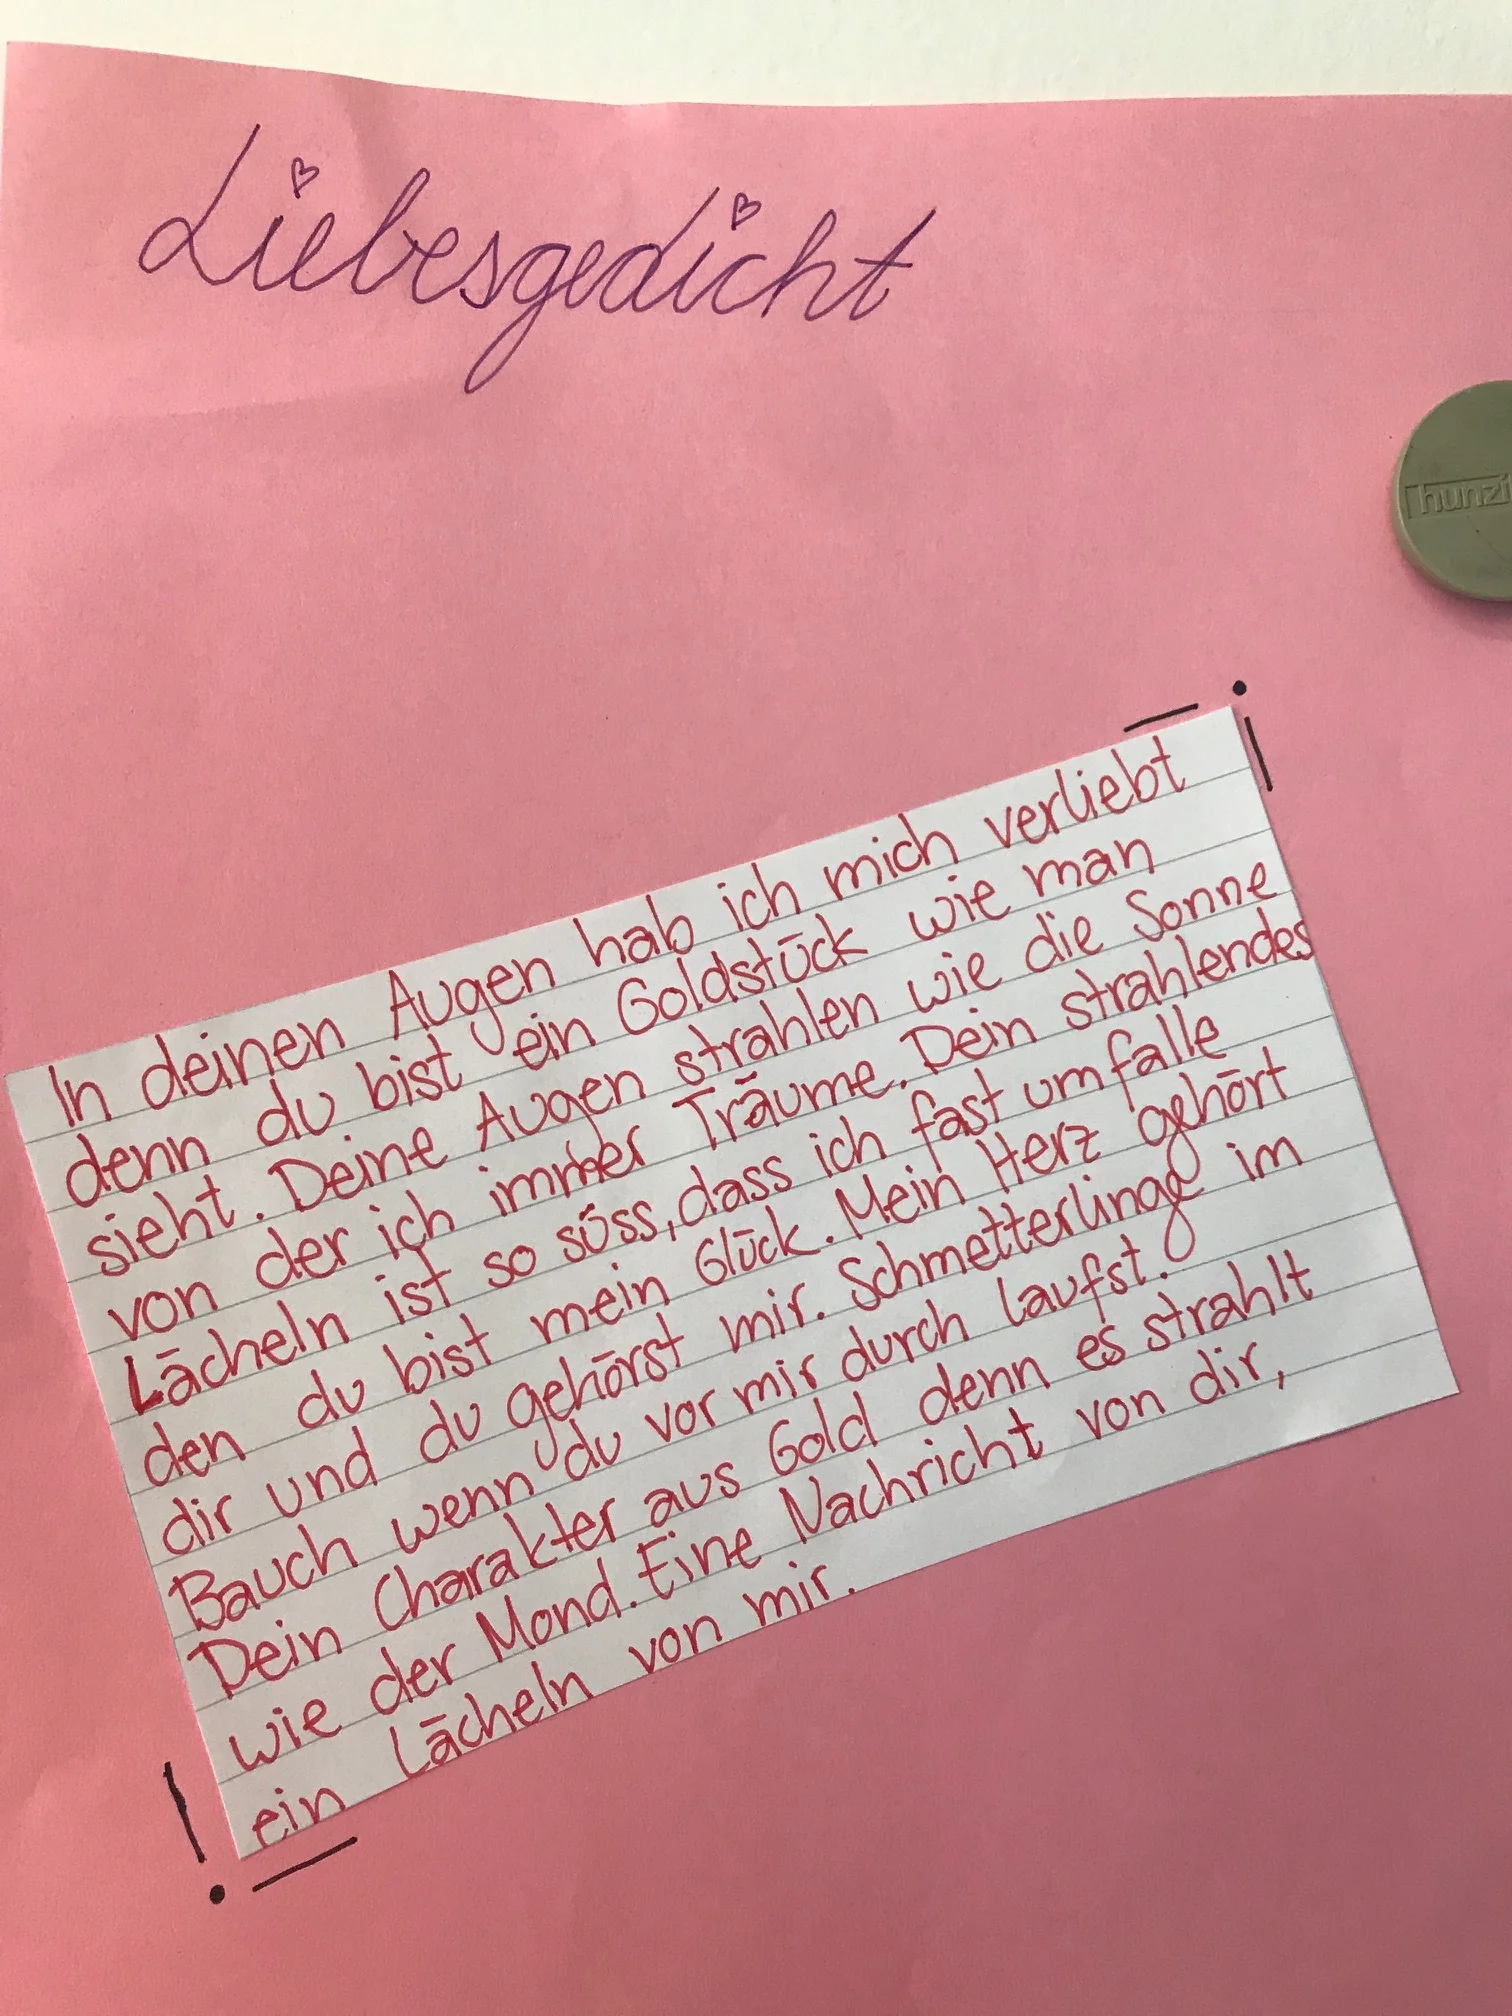 Liebesgedicht
hunzi
In deinen Augen hab ich mich verliebt
denn du bist ein Goldstück wie man
sieht. Deine Augen strahlen wie die Sonne
von der ich immer Träume. Dein strahlendes
Lächeln ist so süss, dass ich fast umfalle
den du bist mein Glück. Mein Herz gehört
dir und du gehörst mir. Schmetterlinge im
Bauch wenn du vor mir durch laufst.
Dein Charakter aus Gold denn es strahlt
wie der Mond. Eine Nachricht von dir,
ein Lächeln von mir.